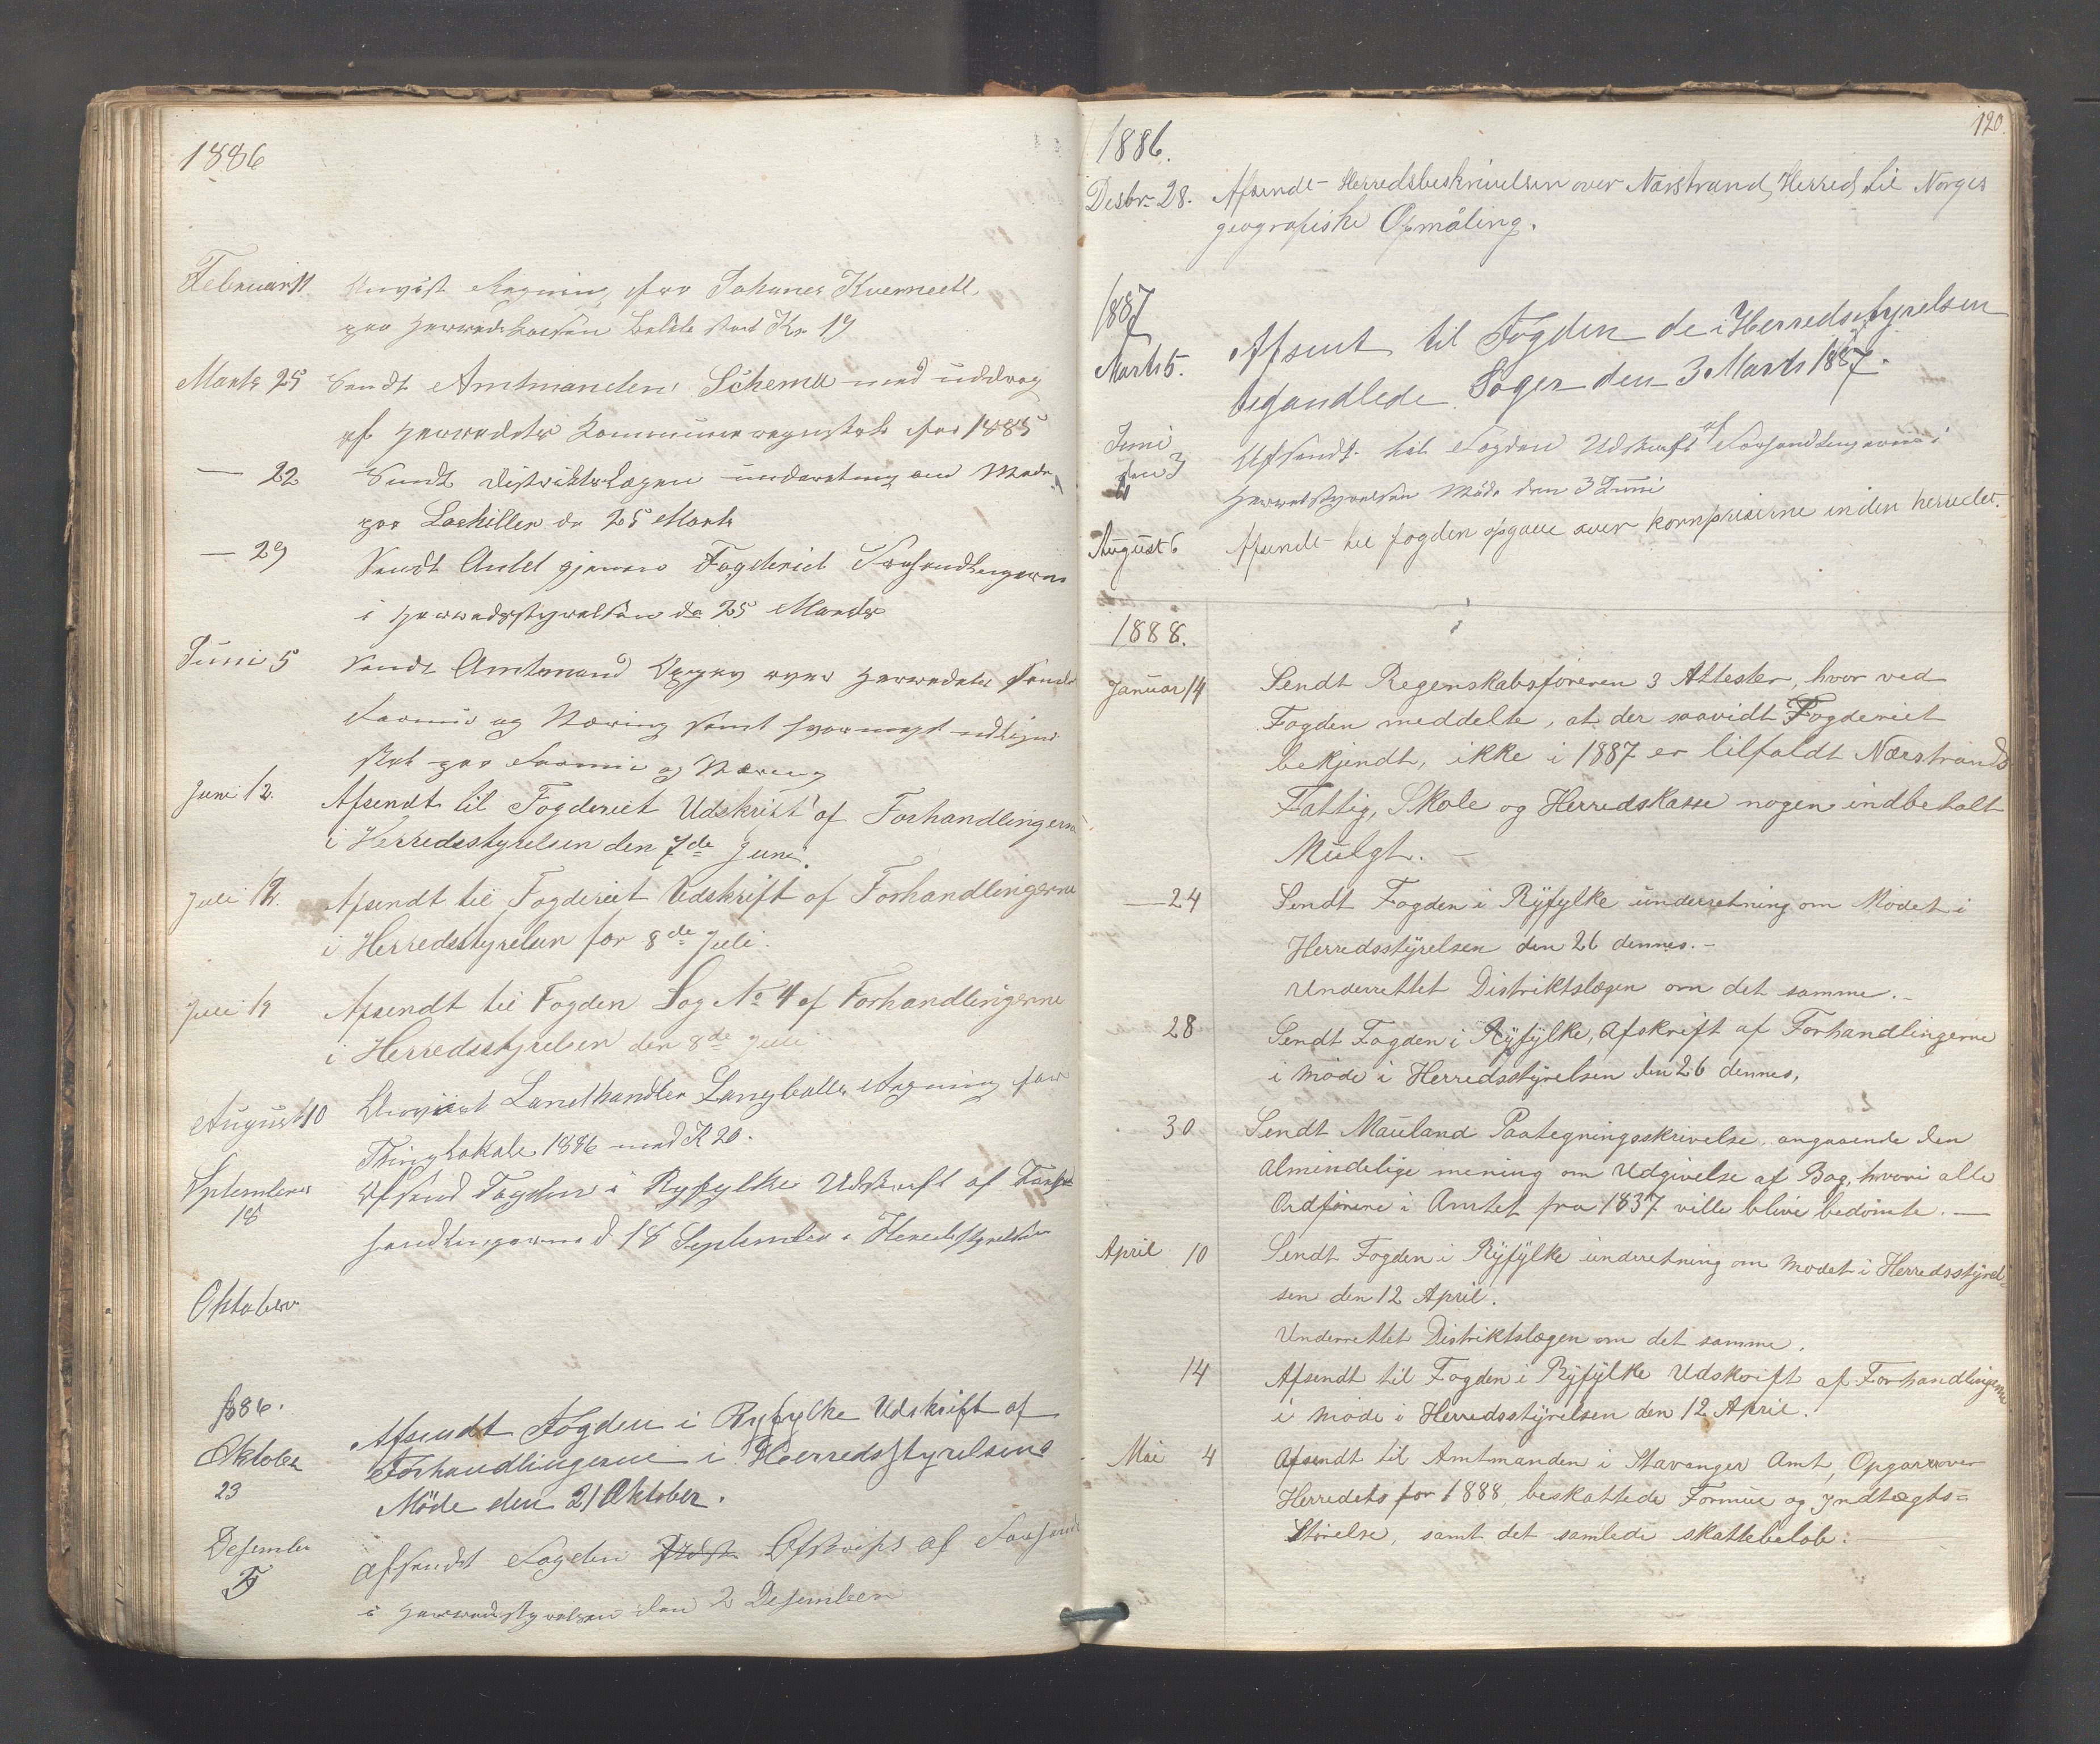 1886
Februar 11 Anvist Regning fra Johanes Kverneell
paa Herredskassen Kr 19
Marts 25 Sendt Amtmanden Schema med uddrag
af Herredets Kommuneregnskab for 1885
— 22 Sendt Distriktslægen underretning om Møde
paa de 25 Marts
— 29 Sendt Amtet gjennem Fogderiet Forhandlingerne
i Herredsstyrelsen de 25 Marts
Juni 5 Sendt Amtmand Opgav over Herredets
Formue og Næring samt hvormeget udlignet
Skat paa Formue og Næring
Juni 12. Afsendt til Fogderiet Udskrift af Forhandlingerne
i Herredsstyrelsen den 7de Juni.
Juli 12. Afsendt til Fogderiet Udskrift af Forhandlingerne
i Herredsstyrelsen for 8de Juli.
Juli 19 Afsendt til Fogden Sag No 4 af Forhandlingerne
i Herredsstyrelsen den 8de Juli
August 10 Anvist Landhandler Langballe Regning for
Thinglokale 1886 med K 20.
September Afsend Fogden i Ryfylke Udskrift af For
18 handlingerne d 18 September i Herredsstyrelsen
Oktober
1886.
Oktober Afsendt Fogden i Ryfylke Udskrift af
23 Forhandlingerne i Herredsstyrelsens
Møde den 21 Oktober.
Desember Afsendt Fogden Afskrift af Forhand
i Herredsstyrelsen den 2 Desember
120.
1886.
Desbr. 28. Afsendt Herredsbeskrivelsen over Nærstrand Herred til Norges
geografiske Opmåling.
1887
Marts 5. Afsent til Fogden de i Herredsstyrelsen
behandlede Sager den 3 Marts 1887.
Juni Afsendt til Fogden Udskrift af Forhandlingerne i
den 3 Herredsstyrelsen Møde den 3 Juni
August 6 Afsendt til fogden opgave over kornpriserne inden herredet.
1888.
Januar 14 Sendt Regenskabsføreren 3 Attester, hvor ved
Fogden meddelte, at der saavidt Fogderiet
bekjendt, ikke i 1887 er tilfaldt Nærstrands
Fattig, Skole og Herredskasse nogen indbetalt
Mulgt. —
— 24 Sendt Fogden i Ryfylke underretning om Mødet i
Herredsstyrelsen den 26 dennes. —
Underrettet Distriktslægen om det samme. —
28 Sendt Fogden i Ryfylke, Afskrift af Forhandlingerne
i møde i Herredsstyrelsen den 26 dennes,
30 Sendt Mauland Paategningsskrivelse, angaaende den
almindelige mening om Udgivelse af Bog, hvori alle
Ordførere i Amtet fra 1837 ville blive bedømte. —
April 10 Sendt Fogden i Ryfylke underretning om mødet i Herredsstyrel-
sen den 12 April.
Underrettet Distriktslægen om det samme.
14 Afsendt til Fogden i Ryfylke Udskrift af Forhandlingerne
i møde i Herredsstyrelsen den 12 April.
Mai 4 Afsendt til Amtmanden i Stavanger Amt, Opgave over
Herredets for 1888, beskattede Formue og Indtægts=
Størelse, samt det samlede skattebeløb. —